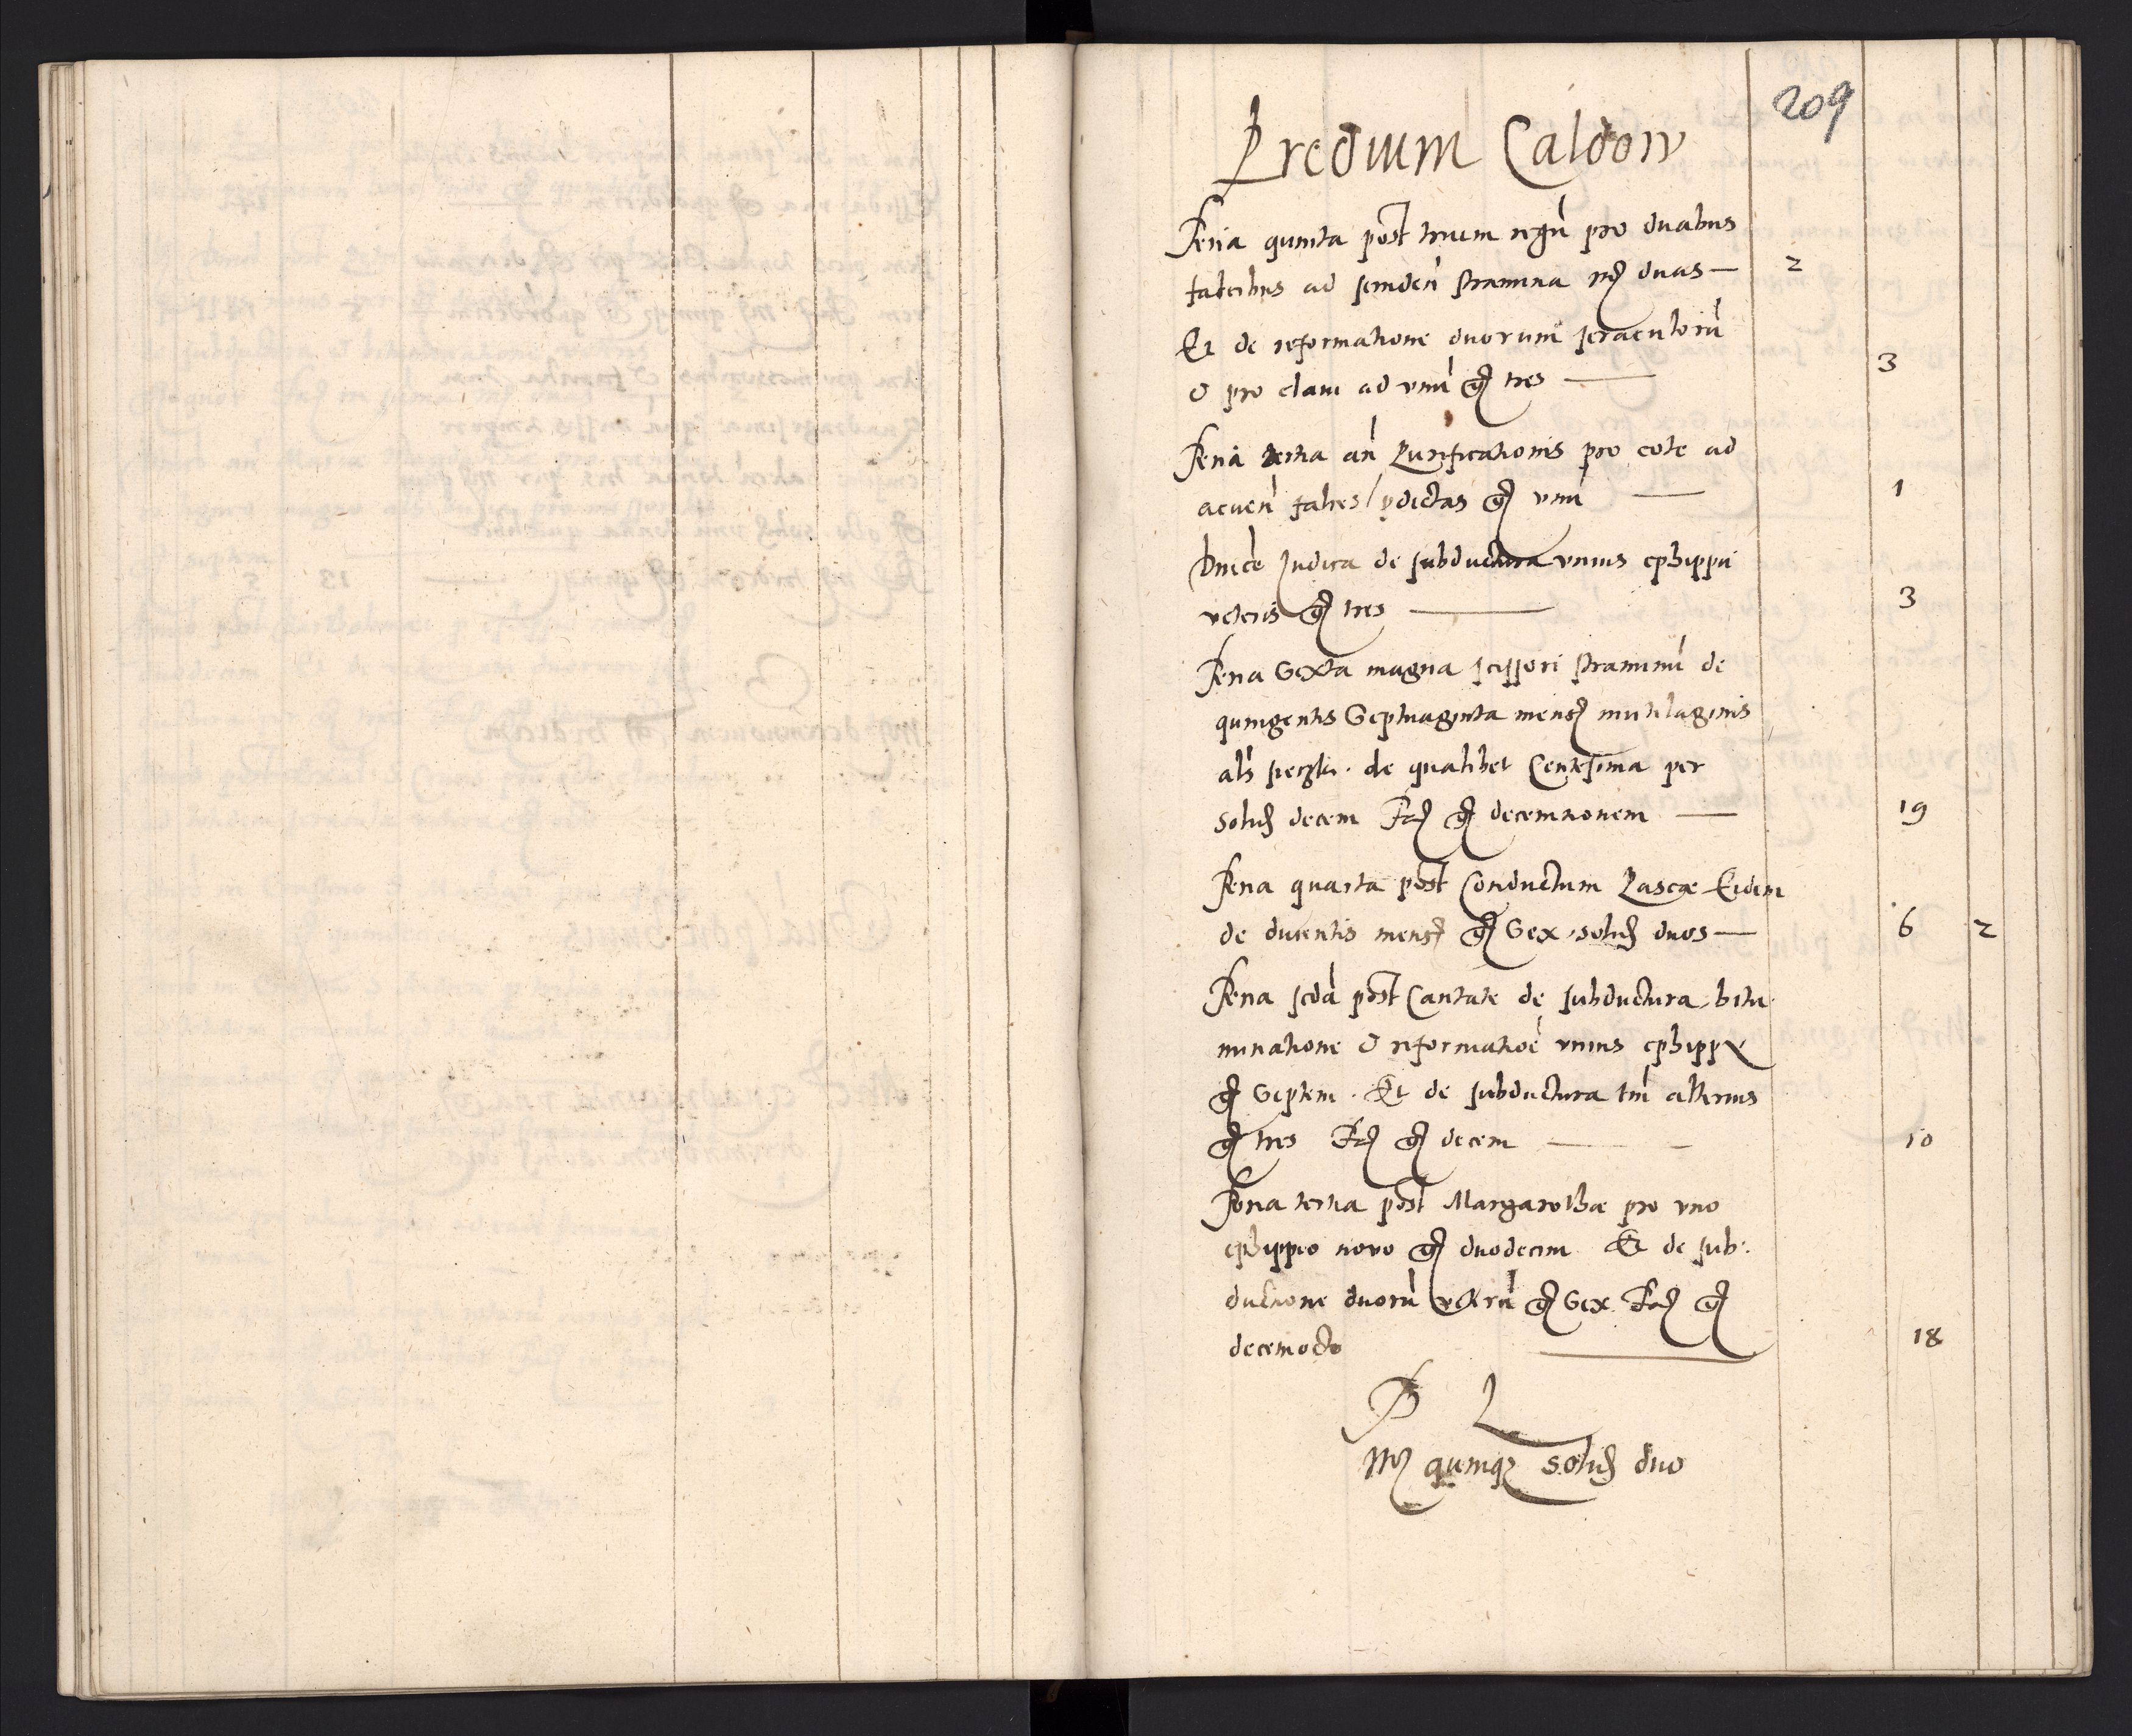 209
Predium Caldow
Feria quinta post trium regu pro duabus
falcibus ad scinden stramina mr duas — 2
Et de reformatione duorum seraculoru
& pro claui ad vnu gr tres — 3
Feria tertia an Purificationis pro cote ad
acuen falces pdictas gr vnu — 1
Dnico Iudica de subductura vnius ephippii
veteris gr tres — 3
Feria Sexta magna scissori straminu de
quingentis Septuaginta mens mutilaginis
als sieczki. de qualibet Centesima per
solid decem Fac gr decemnonem — 19
Feria quarta post Conductum Pascae Eidem
de ducentis mens gr Sex solid duos — 6 2
Feria scda post Cantate de subductura bitu
minatione & reformatioe vnius ephippy
gr Septem. Et de subductura tm alterius
gr tres Fac gr decem — 10
Feria tertia post Margarethae pro vno
ephippio novo gr duodecim Et de sub
ductione duoru veteru gr Sex Fac gr
decemocto — 18
mr quinq solid duo